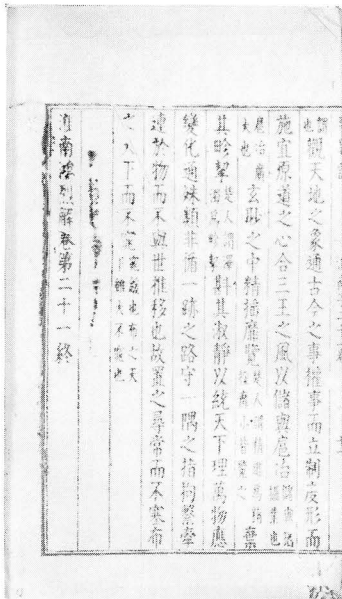 觀天地之象通古今之事權事而立制度形而
施宜原道之心合三王之風以儲與扈冶
玄眇之中精搖靡覽楚人謂精進為精搖靡小皆覽之棄
其畛挈斟其淑靜以統天下理萬物應
變化通殊類非循一跡之路守一隅之指拘繫牽
連於物而不與世推移也故置之尋常而不塞布
之天下而不窕
淮南鴻烈解卷第二十一終